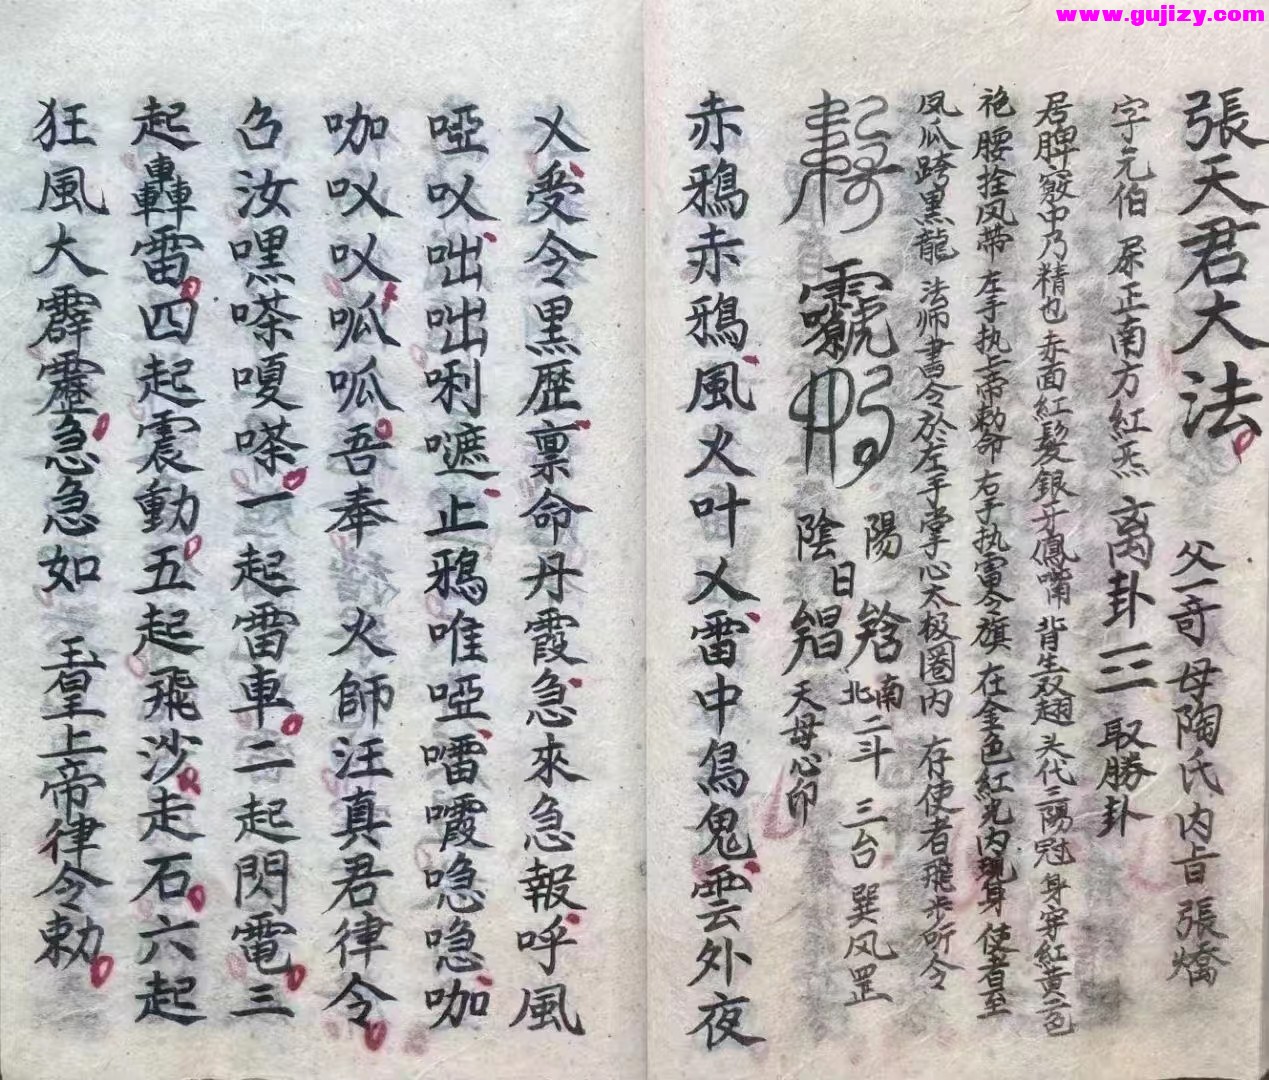 www.gujizy.com
張天君大法 父一奇母陶氏内㫖張燆
字元伯 尿正南方紅炁 离卦三 取勝卦
居脾竅中乃精也 赤面紅髮銀牙鳳嘴 背生双翅 头代三陽冠 身穿紅黄二色
袍 腰拴风带 左手执上帝勅命 右手执軍令旗 在金色紅光内现身 使者至
凤爪跨黑龍 法师書令於左手掌心太极圈内 存使者飛步听令
陽 南二斗 三台 巽风罡
陰日 北 天母心印
赤鴉赤鴉風火叶乂雷中鳥鬼雲外夜
乂受令黒歴稟命丹霞急來急報呼風
啞㕥咄咄唎嗻止鴉唯啞㗊噯㥯㥯咖
咖㕥㕥呱呱吾奉 火師汪真君律令
召汝嘿嗏嗄嗏一起雷車二起閃電三
起轟雷四起震動五起飛沙走石六起
狂風大霹靂急急如 玉皇上帝律令勅